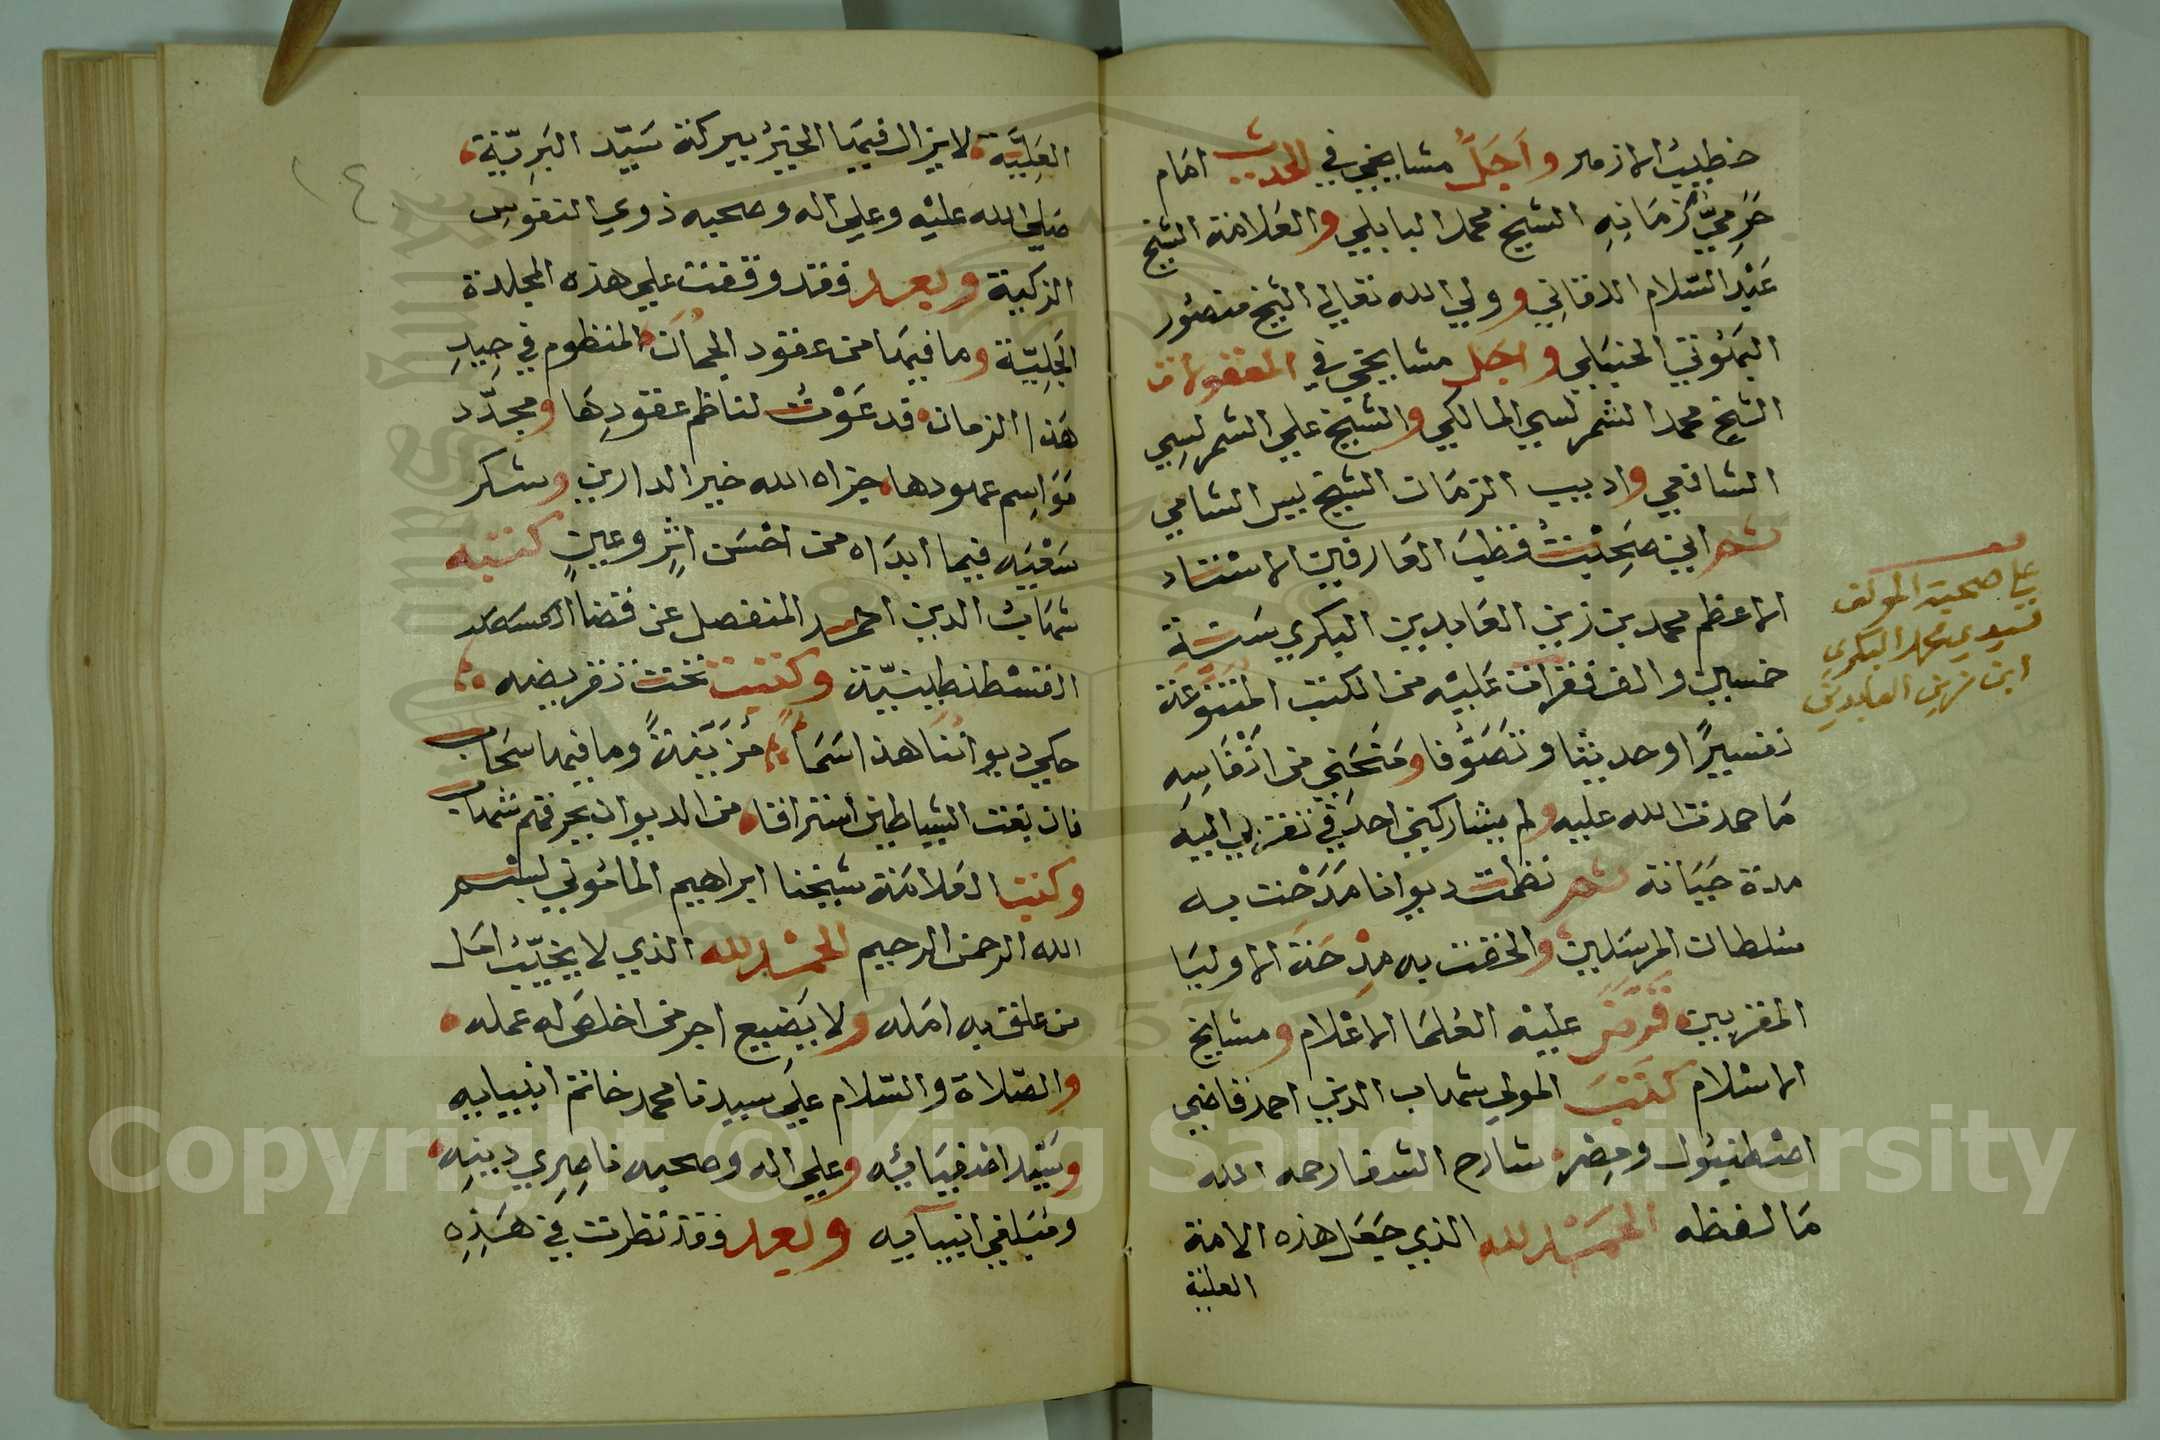 خطيب الازهر واجل مشايخي في الحديث امام
حرمي زمانه الشيخ محمد البابلي والعلامة الشيخ
عبد السلام اللقاني وولي الله تعالي الشيخ منصور
البهوتي الحنبلي واجل مشايخي في المعقولات
الشيخ محمد الشمرلسي المالكي والشيخ علي الشمرلسي
الشافعي واديب الزمان الشيخ يس الشامي
ثم اني صحبت قطب العارفين الاستاد
الاعظم محمد بن زين العابدين البكري سنة
خمسين والف فقرات عليه من الكتب المتنوعة
تفسيرا وحديثا وتصوفا ومنحني من انفاسه
ما حمدت الله عليه ولم يشاركني احد في تقربي اليه
مدة حياته ثم نظمت ديوانا مدحت به
سلطان المرسلين والحقت به مدحة الاوليا
المقربين فقرض عليه العلما الاعلام ومشايخ
الاسلام كتب المولي شهاب الدين احمد قاضي
اصطنبول ومصر شارح الشفا رحمه الله
ما لفظه الحمد لله الذي جعل هذه الامة
العلية
علي صحبة المولف
لسيدي محمد البكري
ابن زين العابدين
العلية لا يزال فيها الخير ببركة سيد البرية
صلي الله عليه وعلي اله وصحبه ذوي النفوس
الزكية وبعد فقد وقفت علي هذه المجلدة
الجلية وما فيها من عقود الجمان المنظوم في جيد
هذا الزمان قد عوت لناظم عقودها ومجدد
مواسم عهودها جزاه الله خير الدارين وشكر
سعيه فيما ابداه من احسن اثر وعين كتبه
شهاب الدين احمد المنفصل عن قضا
القسطنطينية وكتبت تحت تقريضه
حكي ديواننا هذا سما مزينة وما فيها سحاب
فان بغت الشياطين استراقا من الديوان يحرقهم شهاب
وكتب العلامة شيخنا ابراهيم الماموني بسم
الله الرحمن الرحيم الحمد لله الذي لا يخيب امل
من علق به امله ولا يضيع اجر من اخلص له عمله
والصلاة والسلام علي سيدنا محمد خاتم انبيايه
وسيد اصفيائه وعلي اله وصحبه ناصري دينه
ومبلغي انبيايه وبعد فقد نظرت في هذه
Copyright © King Saud University